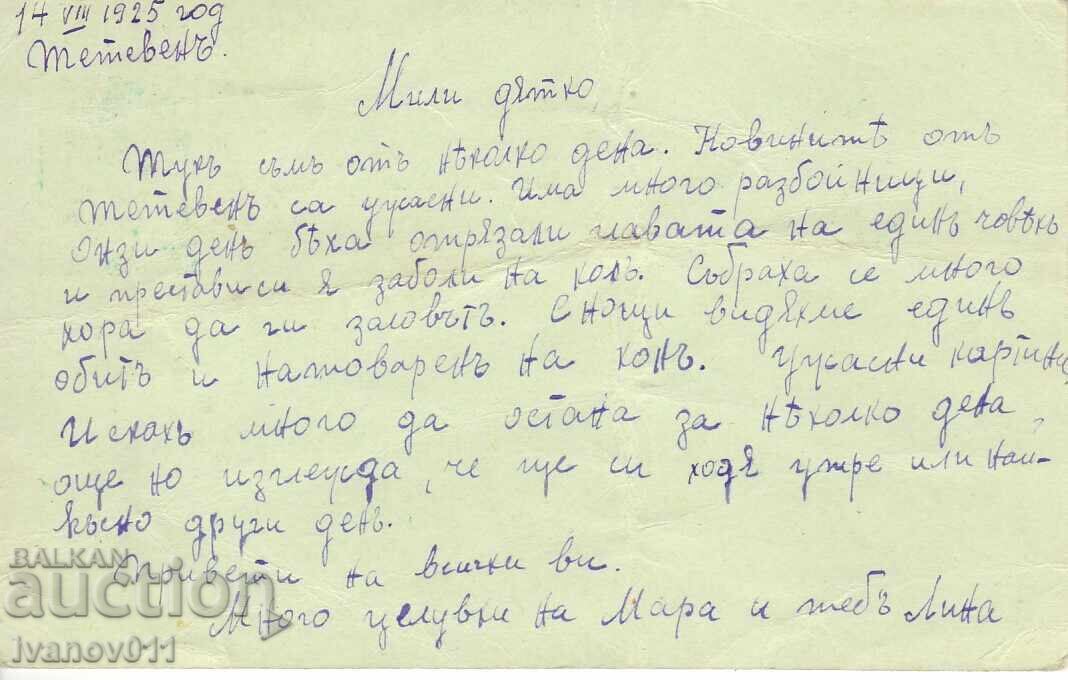 14 VIII 1925 год
Тетевенъ.
Мили дятко,
Тукъ съмъ отъ нѣколко дена. Новинитѣ отъ
Тетевенъ са ужасни. Има много разбойници,
Онзи день бѣха отрязали главата на единъ човѣкъ
и я заболи на колъ. Събраха се много
хора да ги заловътъ. Снощи видяхме единъ
обитъ и натоваренъ на конъ. Ужасни картини,
Искахъ много да остана за нѣколко дена
още но изглежда, че ще си ходя утре или най-
късно други день.
Привети на всички ви.
Много целувки на Мара и тебъ Лина
BALKAN
auction
ivanov011